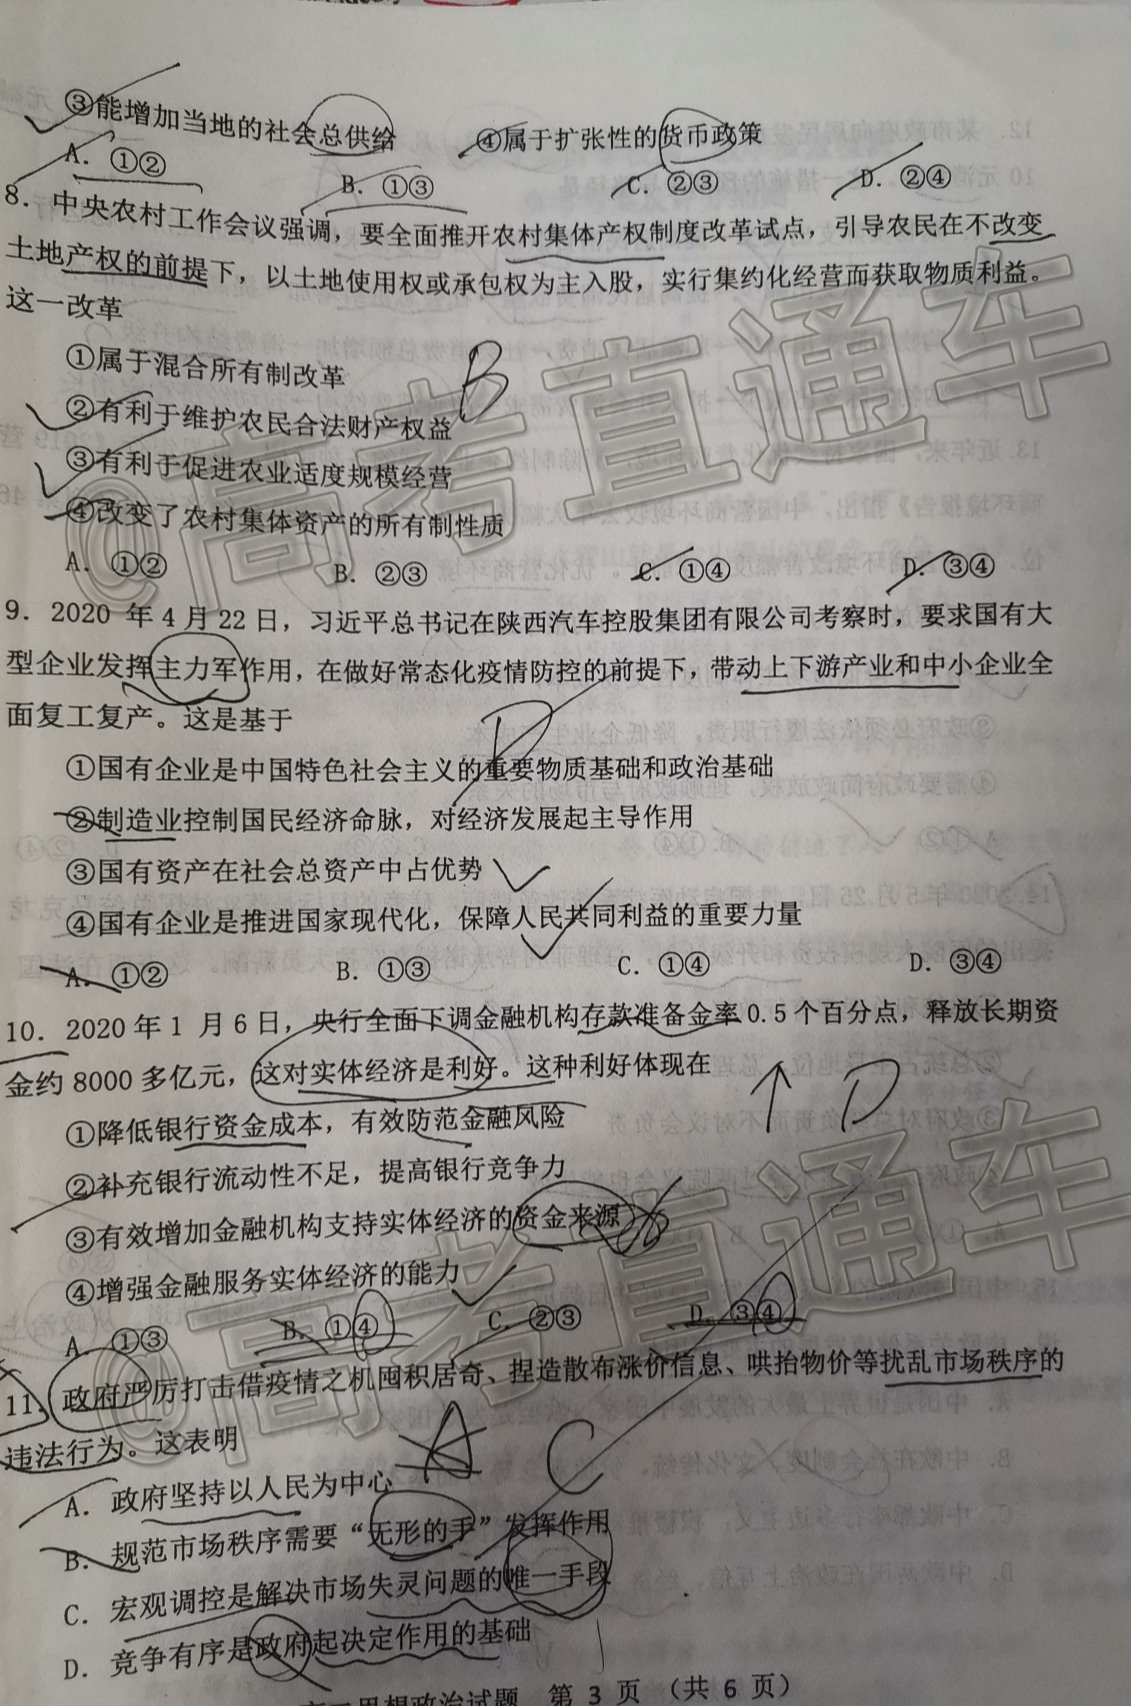 ③能增加当地的社会总供给 ④属于扩张性的货币政策
A. ①② B. ①③ C. ②③ D. ②④
8. 中央农村工作会议强调，要全面推开农村集体产权制度改革试点，引导农民在不改变
土地产权的前提下，以土地使用权或承包权为主入股，实行集约化经营而获取物质利益。
这一改革
①属于混合所有制改革
B
②有利于维护农民合法财产权益
③有利于促进农业适度规模经营
④改变了农村集体资产的所有制性质
A. ①② B. ②③ C. ①④ D. ③④
9. 2020 年 4 月 22 日，习近平总书记在陕西汽车控股集团有限公司考察时，要求国有大
型企业发挥主力军作用，在做好常态化疫情防控的前提下，带动上下游产业和中小企业全
面复工复产。这是基于
D
①国有企业是中国特色社会主义的重要物质基础和政治基础
②制造业控制国民经济命脉，对经济发展起主导作用
③国有资产在社会总资产中占优势
④国有企业是推进国家现代化，保障人民共同利益的重要力量
A. ①② B. ①③ C. ①④ D. ③④
10. 2020 年 1 月 6 日，央行全面下调金融机构存款准备金率 0.5 个百分点，释放长期资
金约 8000 多亿元，这对实体经济是利好。这种利好体现在
D
①降低银行资金成本，有效防范金融风险
②补充银行流动性不足，提高银行竞争力
③有效增加金融机构支持实体经济的资金来源
④增强金融服务实体经济的能力
A. ①③ B. ①④ C. ②③ D. ③④
11. 政府严厉打击借疫情之机囤积居奇、捏造散布涨价信息、哄抬物价等扰乱市场秩序的
违法行为。这表明
A C
A. 政府坚持以人民为中心
B. 规范市场秩序需要“无形的手”发挥作用
C. 宏观调控是解决市场失灵问题的唯一手段
D. 竞争有序是政府起决定作用的基础
思想政治试题 第 3 页 （共 6 页）
@高考直通车
@高考直通车